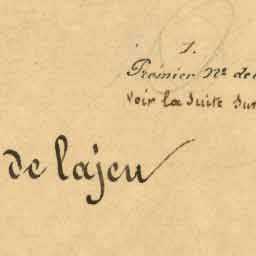 1.
Premier Nº de
Voir la Suite Sur
de lajeu